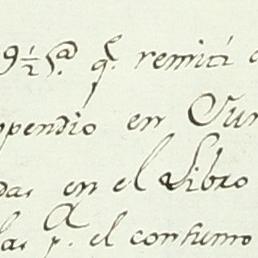 9½ S.ª q.e remiti
ppendio en Cum
das en el Libro
las p.ª el consumo